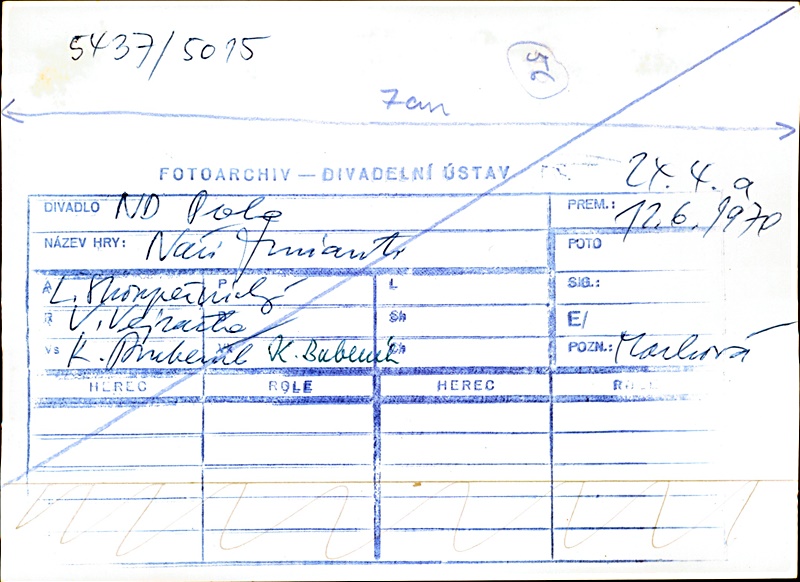 5437/5015
56
7cm
FOTOARCHIV — DIVADELNÍ ÚSTAV
24. 4. a
DIVADLO ND Praha
PREM.: 12.6.1970
NÁZEV HRY: Naši furianti
FOTO
A L. Stroupežnický P L SIG.:
R V. Vejražka Sb E/
VS K. Bubeník K. Bubeník Ch POZN.: Marková
HEREC ROLE HEREC ROLE